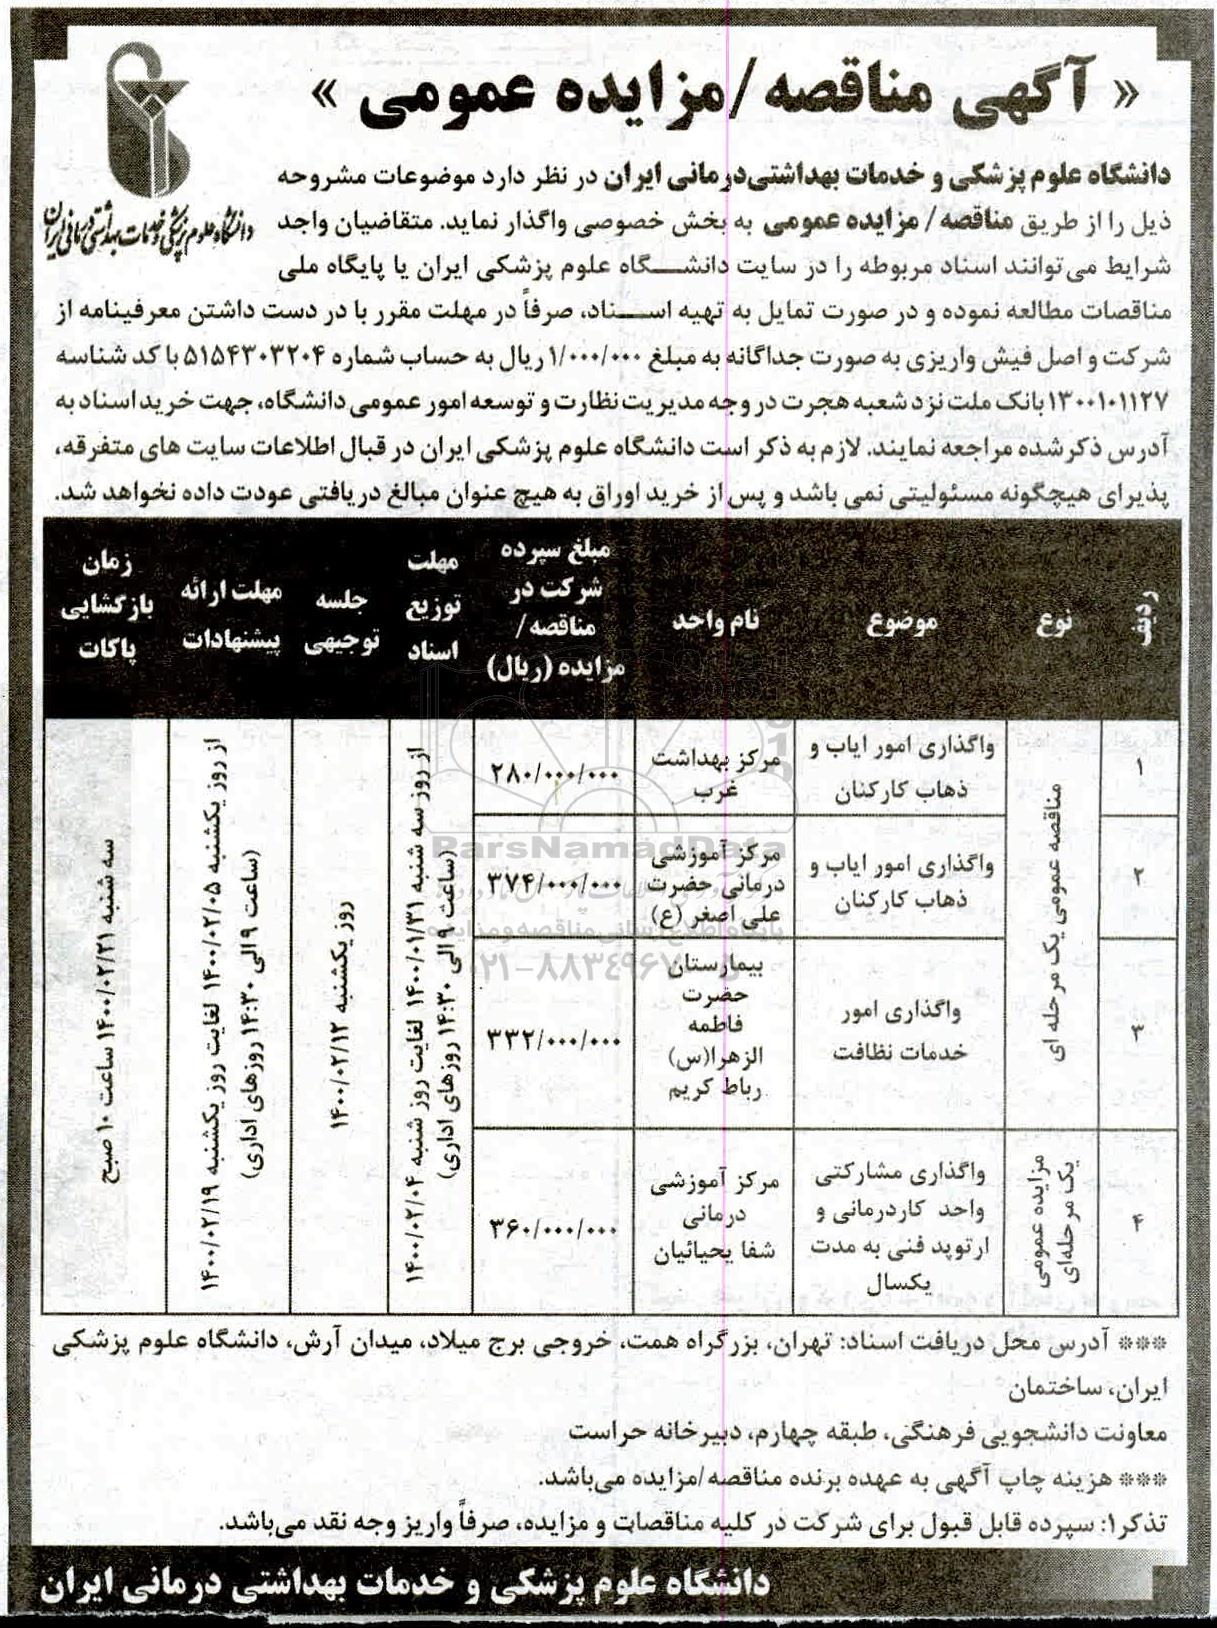 « آگهی مناقصه/مزایده عمومی »
دانشگاه علوم پزشکی و خدمات بهداشتی درمانی ایران
دانشگاه علوم پزشکی و خدمات بهداشتی‌درمانی ایران در نظر دارد موضوعات مشروحه
ذیل را از طریق مناقصه/ مزایده عمومی به بخش خصوصی واگذار نماید. متقاضیان واجد
شرایط می‌توانند اسناد مربوطه را در سایت دانشگاه علوم پزشکی ایران یا پایگاه ملی
مناقصات مطالعه نموده و در صورت تمایل به تهیه اسناد، صرفاً در مهلت مقرر با در دست داشتن معرفینامه از
شرکت و اصل فیش واریزی به صورت جداگانه به مبلغ ۱/۰۰۰/۰۰۰ ریال به حساب شماره ۵۱۵۴۳۰۳۲۰۴ با کد شناسه
۱۳۰۰۱۰۱۱۲۷ بانک ملت نزد شعبه هجرت در وجه مدیریت نظارت و توسعه امور عمومی دانشگاه، جهت خرید اسناد به
آدرس ذکر شده مراجعه نمایند. لازم به ذکر است دانشگاه علوم پزشکی ایران در قبال اطلاعات سایت های متفرقه،
پذیرای هیچگونه مسئولیتی نمی باشد و پس از خرید اوراق به هیچ عنوان مبالغ دریافتی عودت داده نخواهد شد.
ردیف
نوع
موضوع
نام واحد
مبلغ سپرده
شرکت در
مناقصه/
مزایده (ریال)
مهلت
توزیع
اسناد
جلسه
توجیهی
مهلت ارائه
پیشنهادات
زمان
بازگشایی
پاکات
۱
مناقصه عمومی یک مرحله ای
واگذاری امور ایاب و
ذهاب کارکنان
مرکز بهداشت
غرب
۲۸۰/۰۰۰/۰۰۰
از روز سه شنبه ۱۴۰۰/۰۱/۳۱ لغایت روز شنبه ۱۴۰۰/۰۲/۰۴
(ساعت ۹ الی ۱۴:۳۰ روزهای اداری)
روز یکشنبه ۱۴۰۰/۰۲/۱۲
از روز یکشنبه ۱۴۰۰/۰۲/۰۵ لغایت روز یکشنبه ۱۴۰۰/۰۲/۱۹
(ساعت ۹ الی ۱۴:۳۰ روزهای اداری)
سه شنبه ۱۴۰۰/۰۲/۲۱ ساعت ۱۰ صبح
۲
واگذاری امور ایاب و
ذهاب کارکنان
مرکز آموزشی
درمانی حضرت
علی اصغر (ع)
۳۷۴/۰۰۰/۰۰۰
۳
واگذاری امور
خدمات نظافت
بیمارستان
حضرت
فاطمه
الزهرا(س)
رباط کریم
۳۳۲/۰۰۰/۰۰۰
۴
مزایده عمومی
یک مرحله‌ای
واگذاری مشارکتی
واحد کاردرمانی و
ارتوپد فنی به مدت
یکسال
مرکز آموزشی
درمانی
شفا یحیائیان
۳۶۰/۰۰۰/۰۰۰
ParsNamadData
پایگاه اطلاع رسانی مناقصه و مزایده
۰۲۱-۸۸۳۴۹۶۷۰
*** آدرس محل دریافت اسناد: تهران، بزرگراه همت، خروجی برج میلاد، میدان آرش، دانشگاه علوم پزشکی
ایران، ساختمان
معاونت دانشجویی فرهنگی، طبقه چهارم، دبیرخانه حراست
*** هزینه چاپ آگهی به عهده برنده مناقصه/مزایده می‌باشد.
تذکر۱: سپرده قابل قبول برای شرکت در کلیه مناقصات و مزایده، صرفاً واریز وجه نقد می‌باشد.
دانشگاه علوم پزشکی و خدمات بهداشتی درمانی ایران